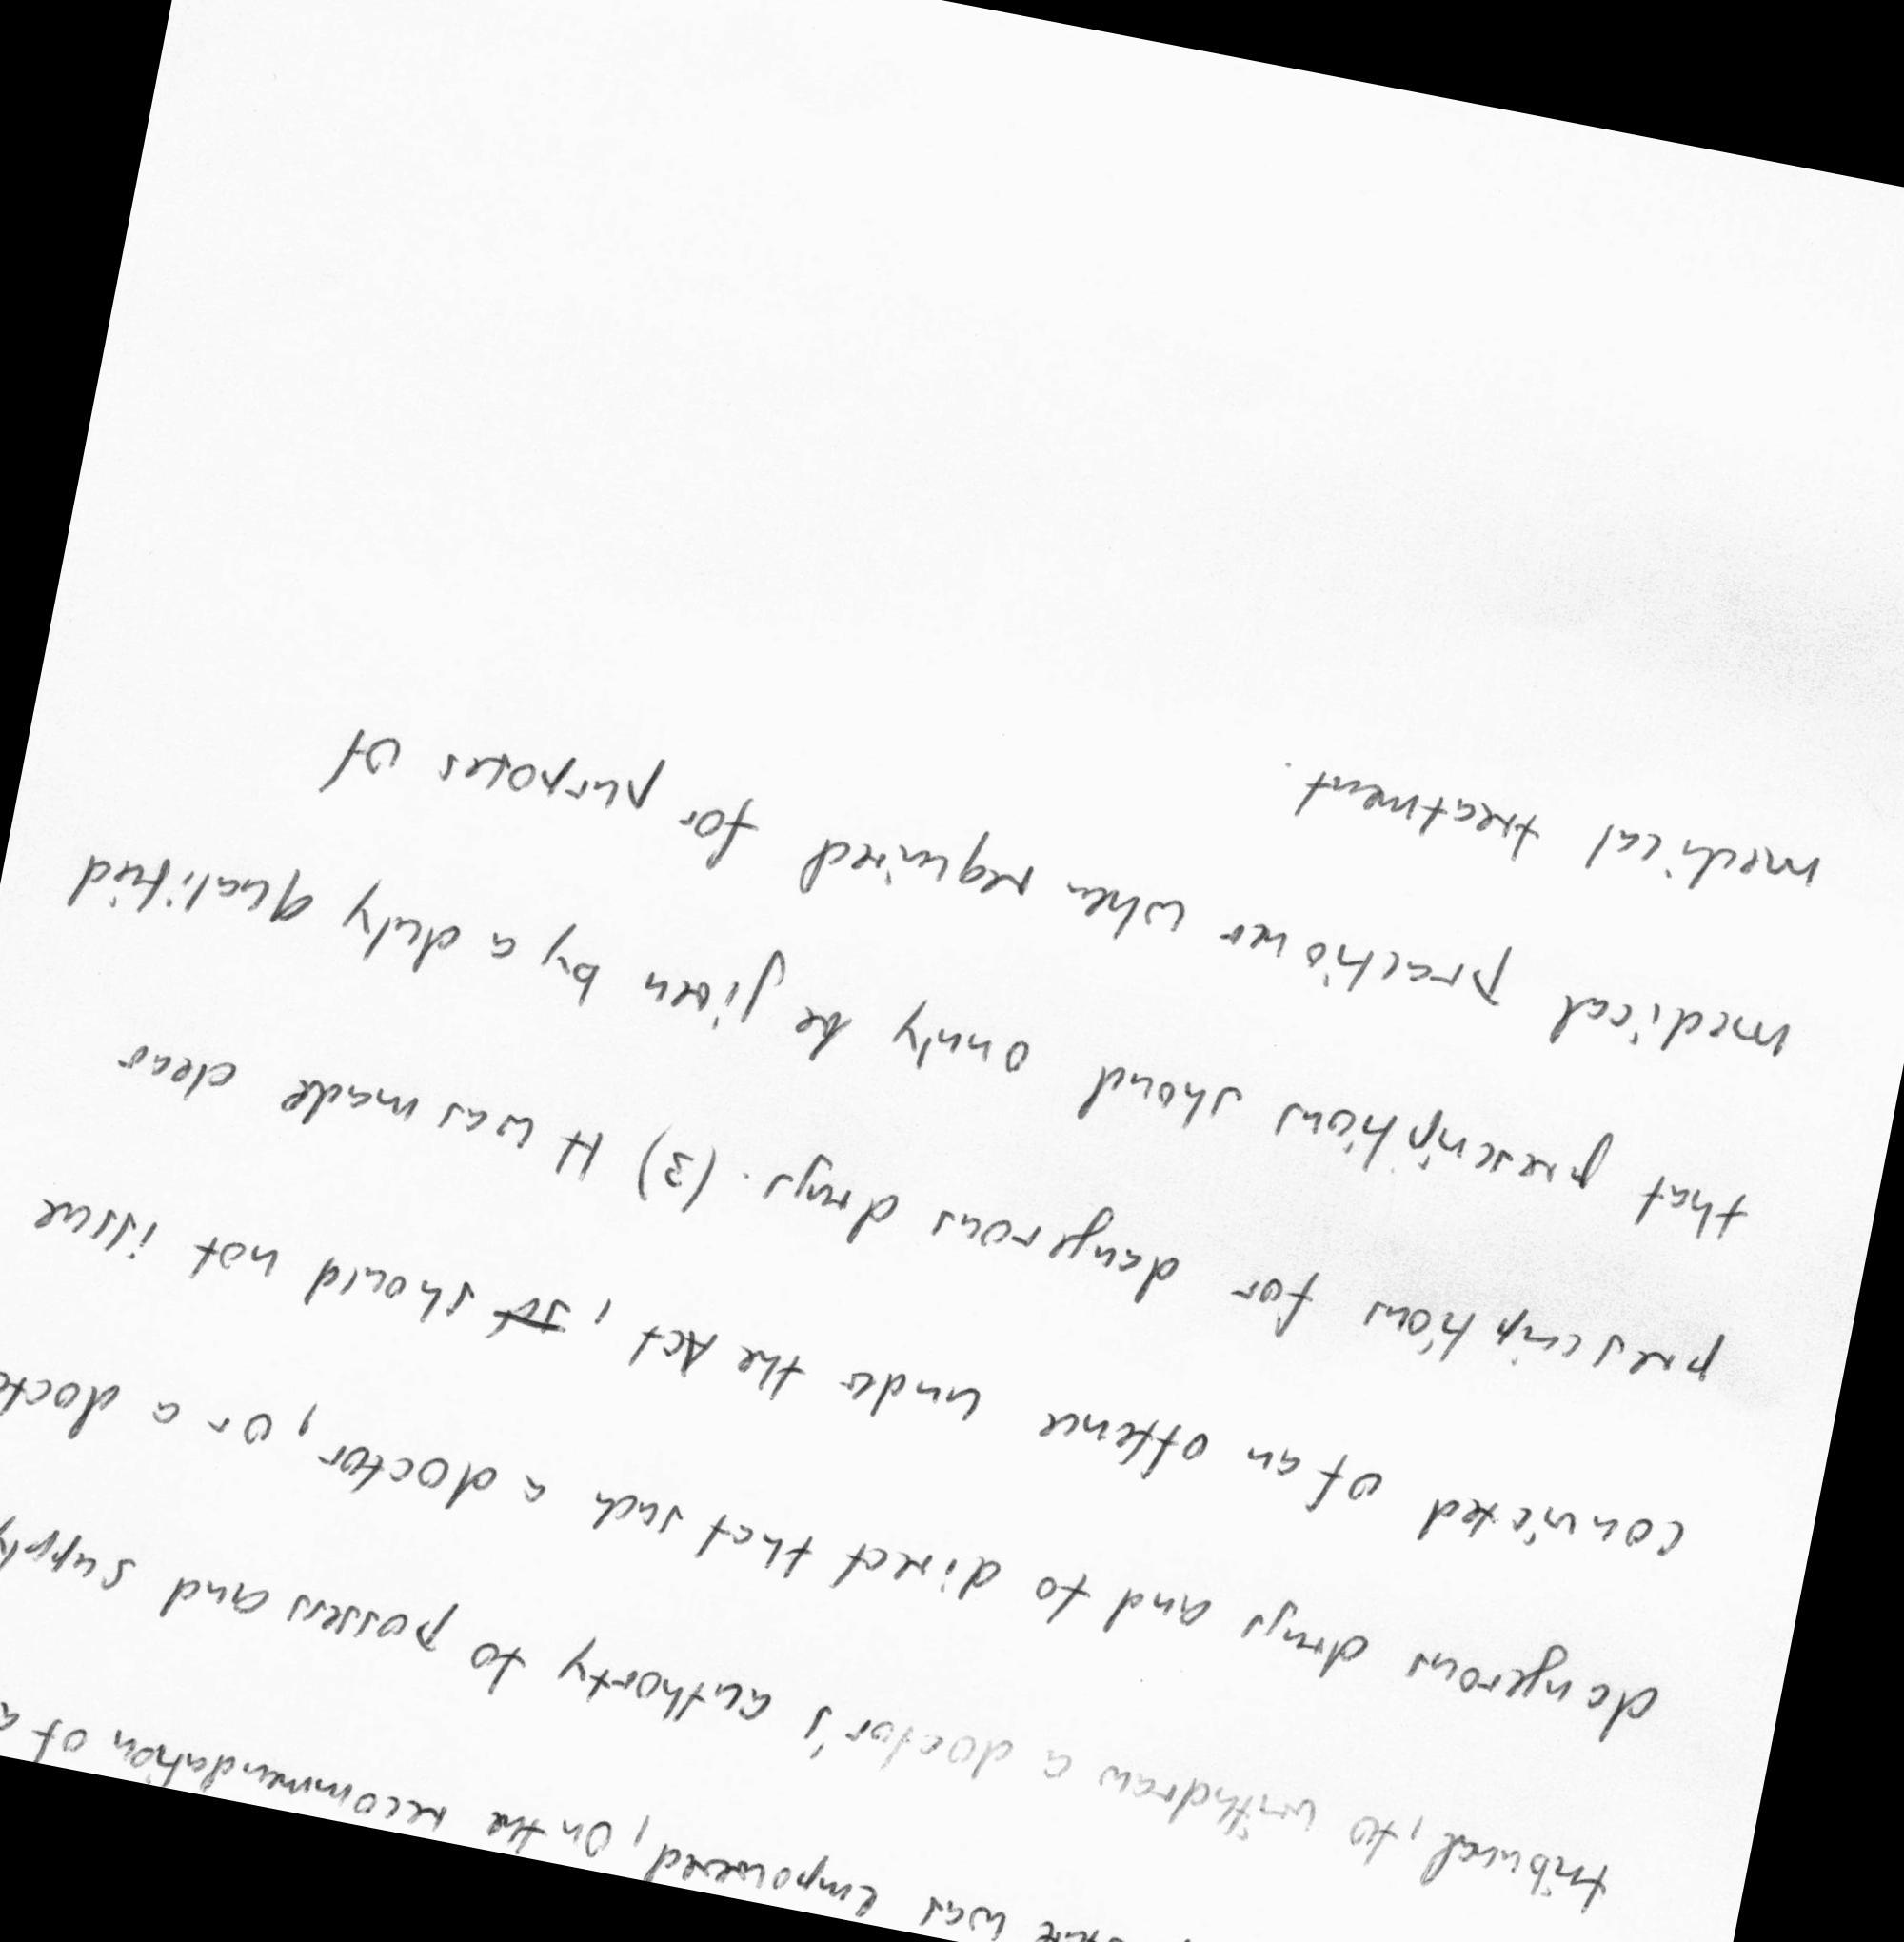 was empowered, on the recommendation of a
tribunal, to withdraw a doctor's authorty to possess and supply
dangerous drugs and to direct that such a doctor, or a docto
convicted of an offence under the Act, should not issue
prescriptions for dangerous drugs. (3) It was made clear
that prescriptions shoud onnly be given by a duly qualified
medical practioner when required for purposes of
medical treatment.